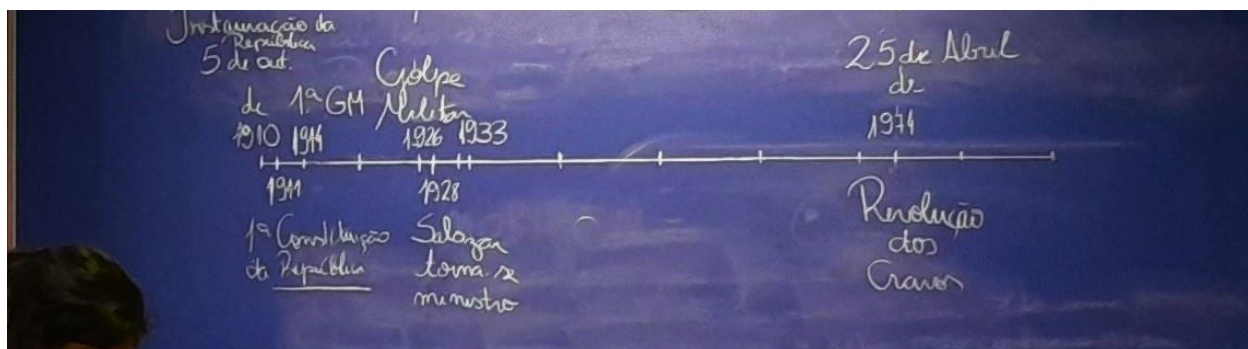 Instauração da
República
5 de out.
de
1910
1ª GM
1914
Golpe
Militar
1926
1933
25 de Abril
de
1974
1911
1ª Constituição
da República
1928
Salazar
torna-se
ministro
Revolução
dos
Cravos